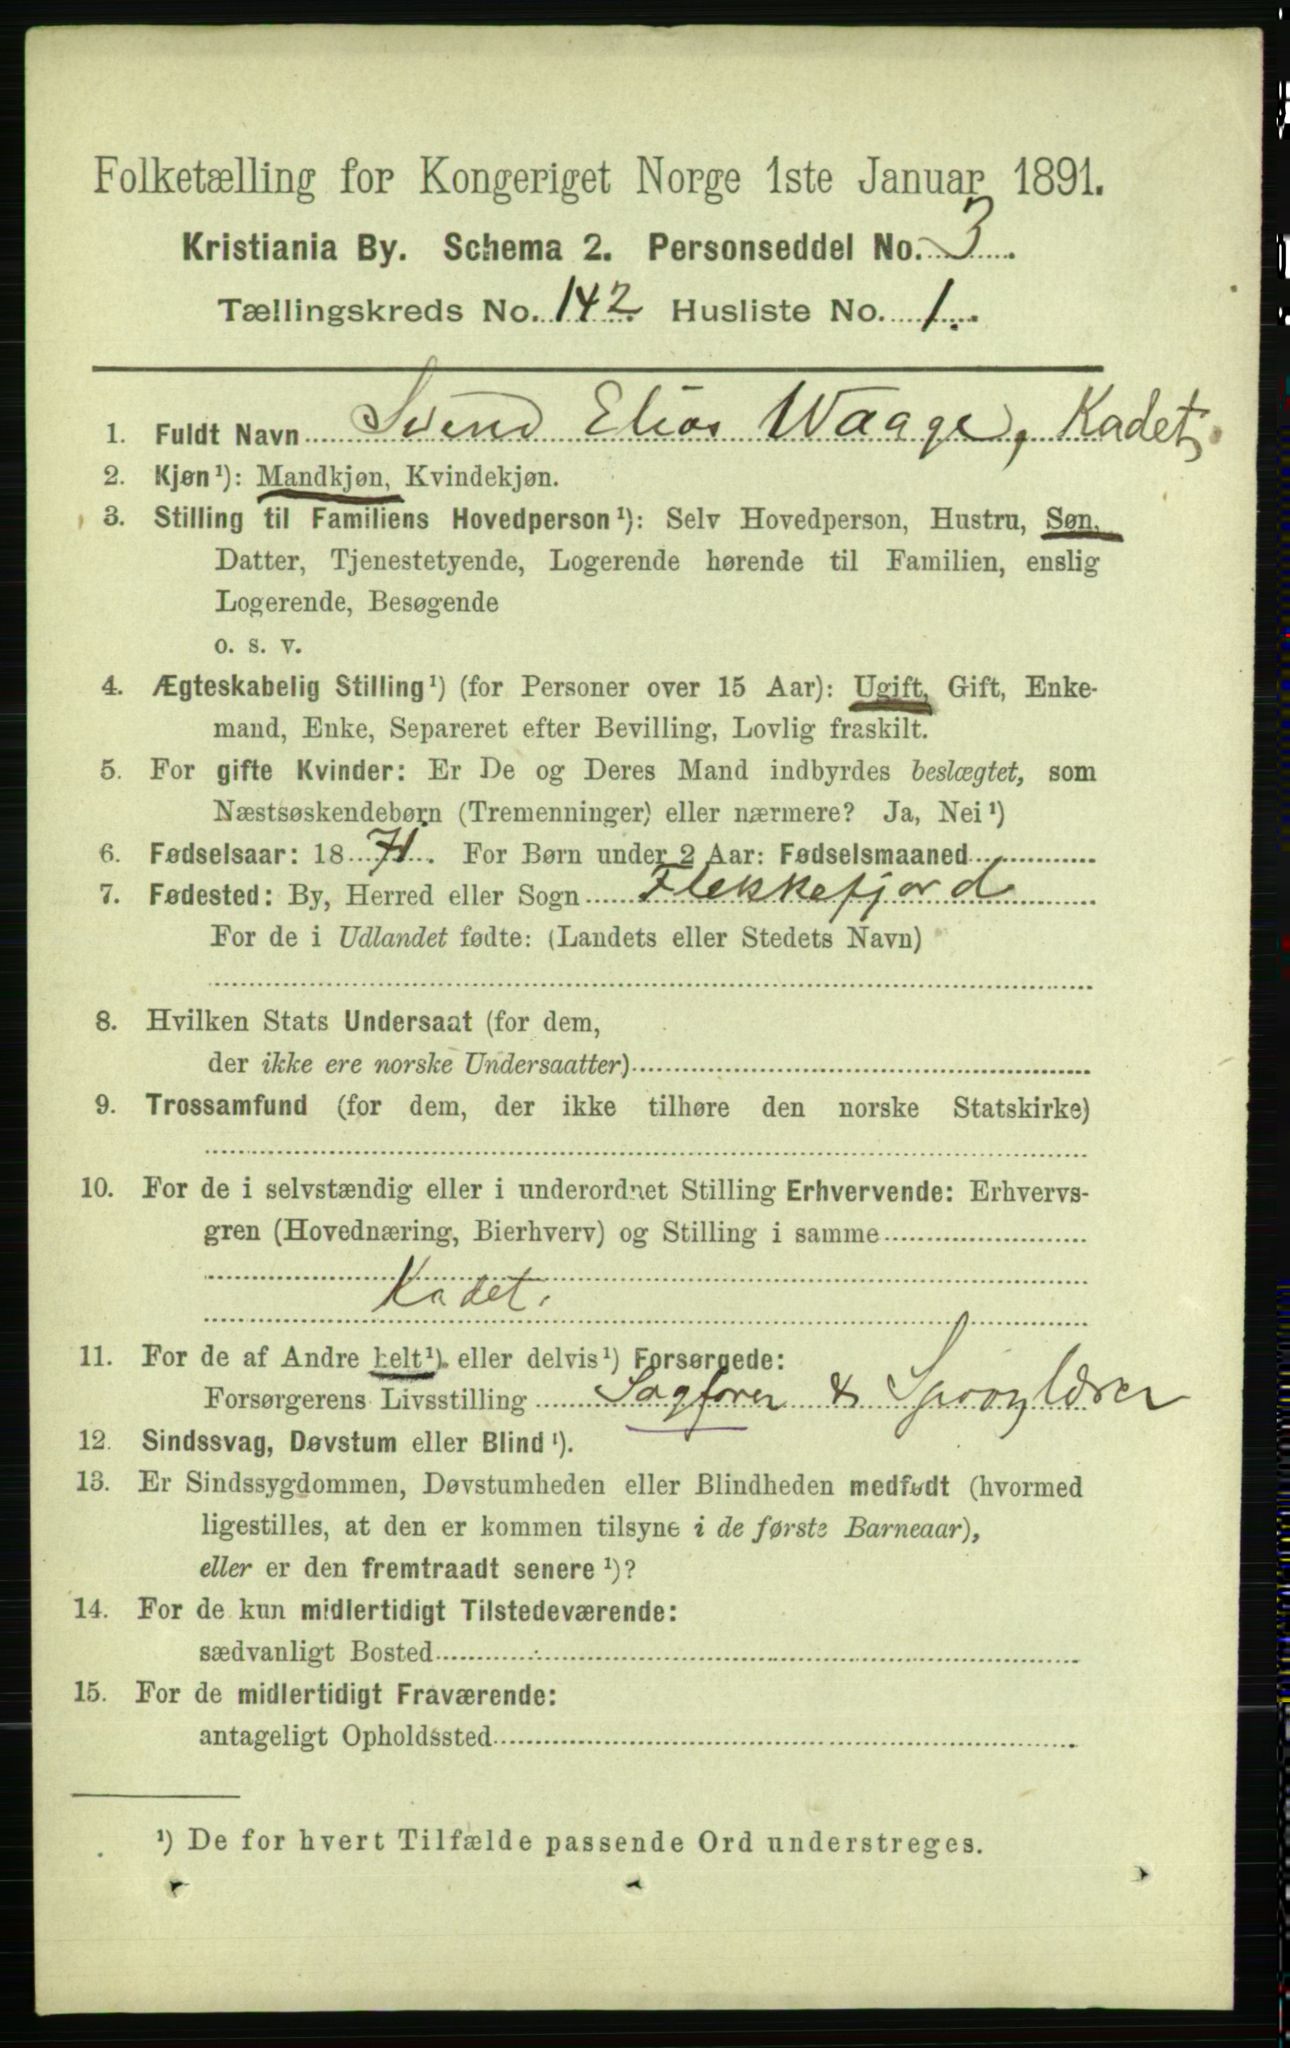 Folketælling for Kongeriget Norge 1ste Januar 1891.
Kristiania By. Schema 2. Personseddel No. 3.
Tællingskreds No. 142 Husliste No. 1.
1. Fuldt Navn Svend Elias Waage, Kadet,
2. Kjøn¹): Mandkjøn, Kvindekjøn.
3. Stilling til Familiens Hovedperson¹): Selv Hovedperson, Hustru, Søn,
Datter, Tjenestetyende, Logerende hørende til Familien, enslig
Logerende, Besøgende
o. s. v.
4. Ægteskabelig Stilling¹) (for Personer over 15 Aar): Ugift, Gift, Enke-
mand, Enke, Separeret efter Bevilling, Lovlig fraskilt.
5. For gifte Kvinder: Er De og Deres Mand indbyrdes beslægtet, som
Næstsøskendebørn (Tremenninger) eller nærmere? Ja, Nei¹)
6. Fødselsaar: 1871. For Børn under 2 Aar: Fødselsmaaned
7. Fødested: By, Herred eller Sogn Flekkefjord
For de i Udlandet fødte: (Landets eller Stedets Navn)
8. Hvilken Stats Undersaat (for dem,
der ikke ere norske Undersaatter)
9. Trossamfund (for dem, der ikke tilhøre den norske Statskirke)
10. For de i selvstændig eller i underordnet Stilling Erhvervende: Erhvervs-
gren (Hovednæring, Bierhverv) og Stilling i samme
Kadet.
11. For de af Andre helt¹) eller delvis¹) Forsørgede:
Forsørgerens Livsstilling Sagfører & Sproglærer
12. Sindssvag, Døvstum eller Blind¹).
13. Er Sindssygdommen, Døvstumheden eller Blindheden medfødt (hvormed
ligestilles, at den er kommen tilsyne i de første Barneaar),
eller er den fremtraadt senere¹)?
14. For de kun midlertidigt Tilstedeværende:
sædvanligt Bosted
15. For de midlertidigt Fraværende:
antageligt Opholdssted
¹) De for hvert Tilfælde passende Ord understreges.